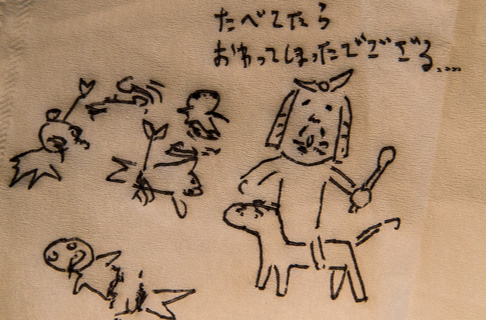 たべてたら
おわってしまったでござる....